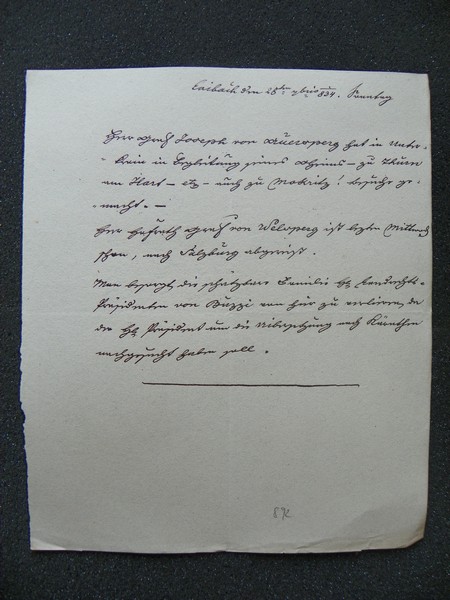 Laibach den 28ten 7bris 834. Sonntag
Herr Graf Joseph von Auersperg hat in Unter-
- Krain in Begleitung seines Oheims - zu Thurn
am Hart - etc - auch zu Mokritz! besuche ge-
macht. -
Herr Hofrath Graf von Welsperg ist lezten Mittwoch
schon, nach Salzburg abgereist.
Man besorgt, die schätzbare Familie H: Landrechts-
Präsidenten von Buzzi von hier zu verlieren, da
der H: Präsident um die Uibersetzung nach Kärnthen
nachgesucht haben soll.